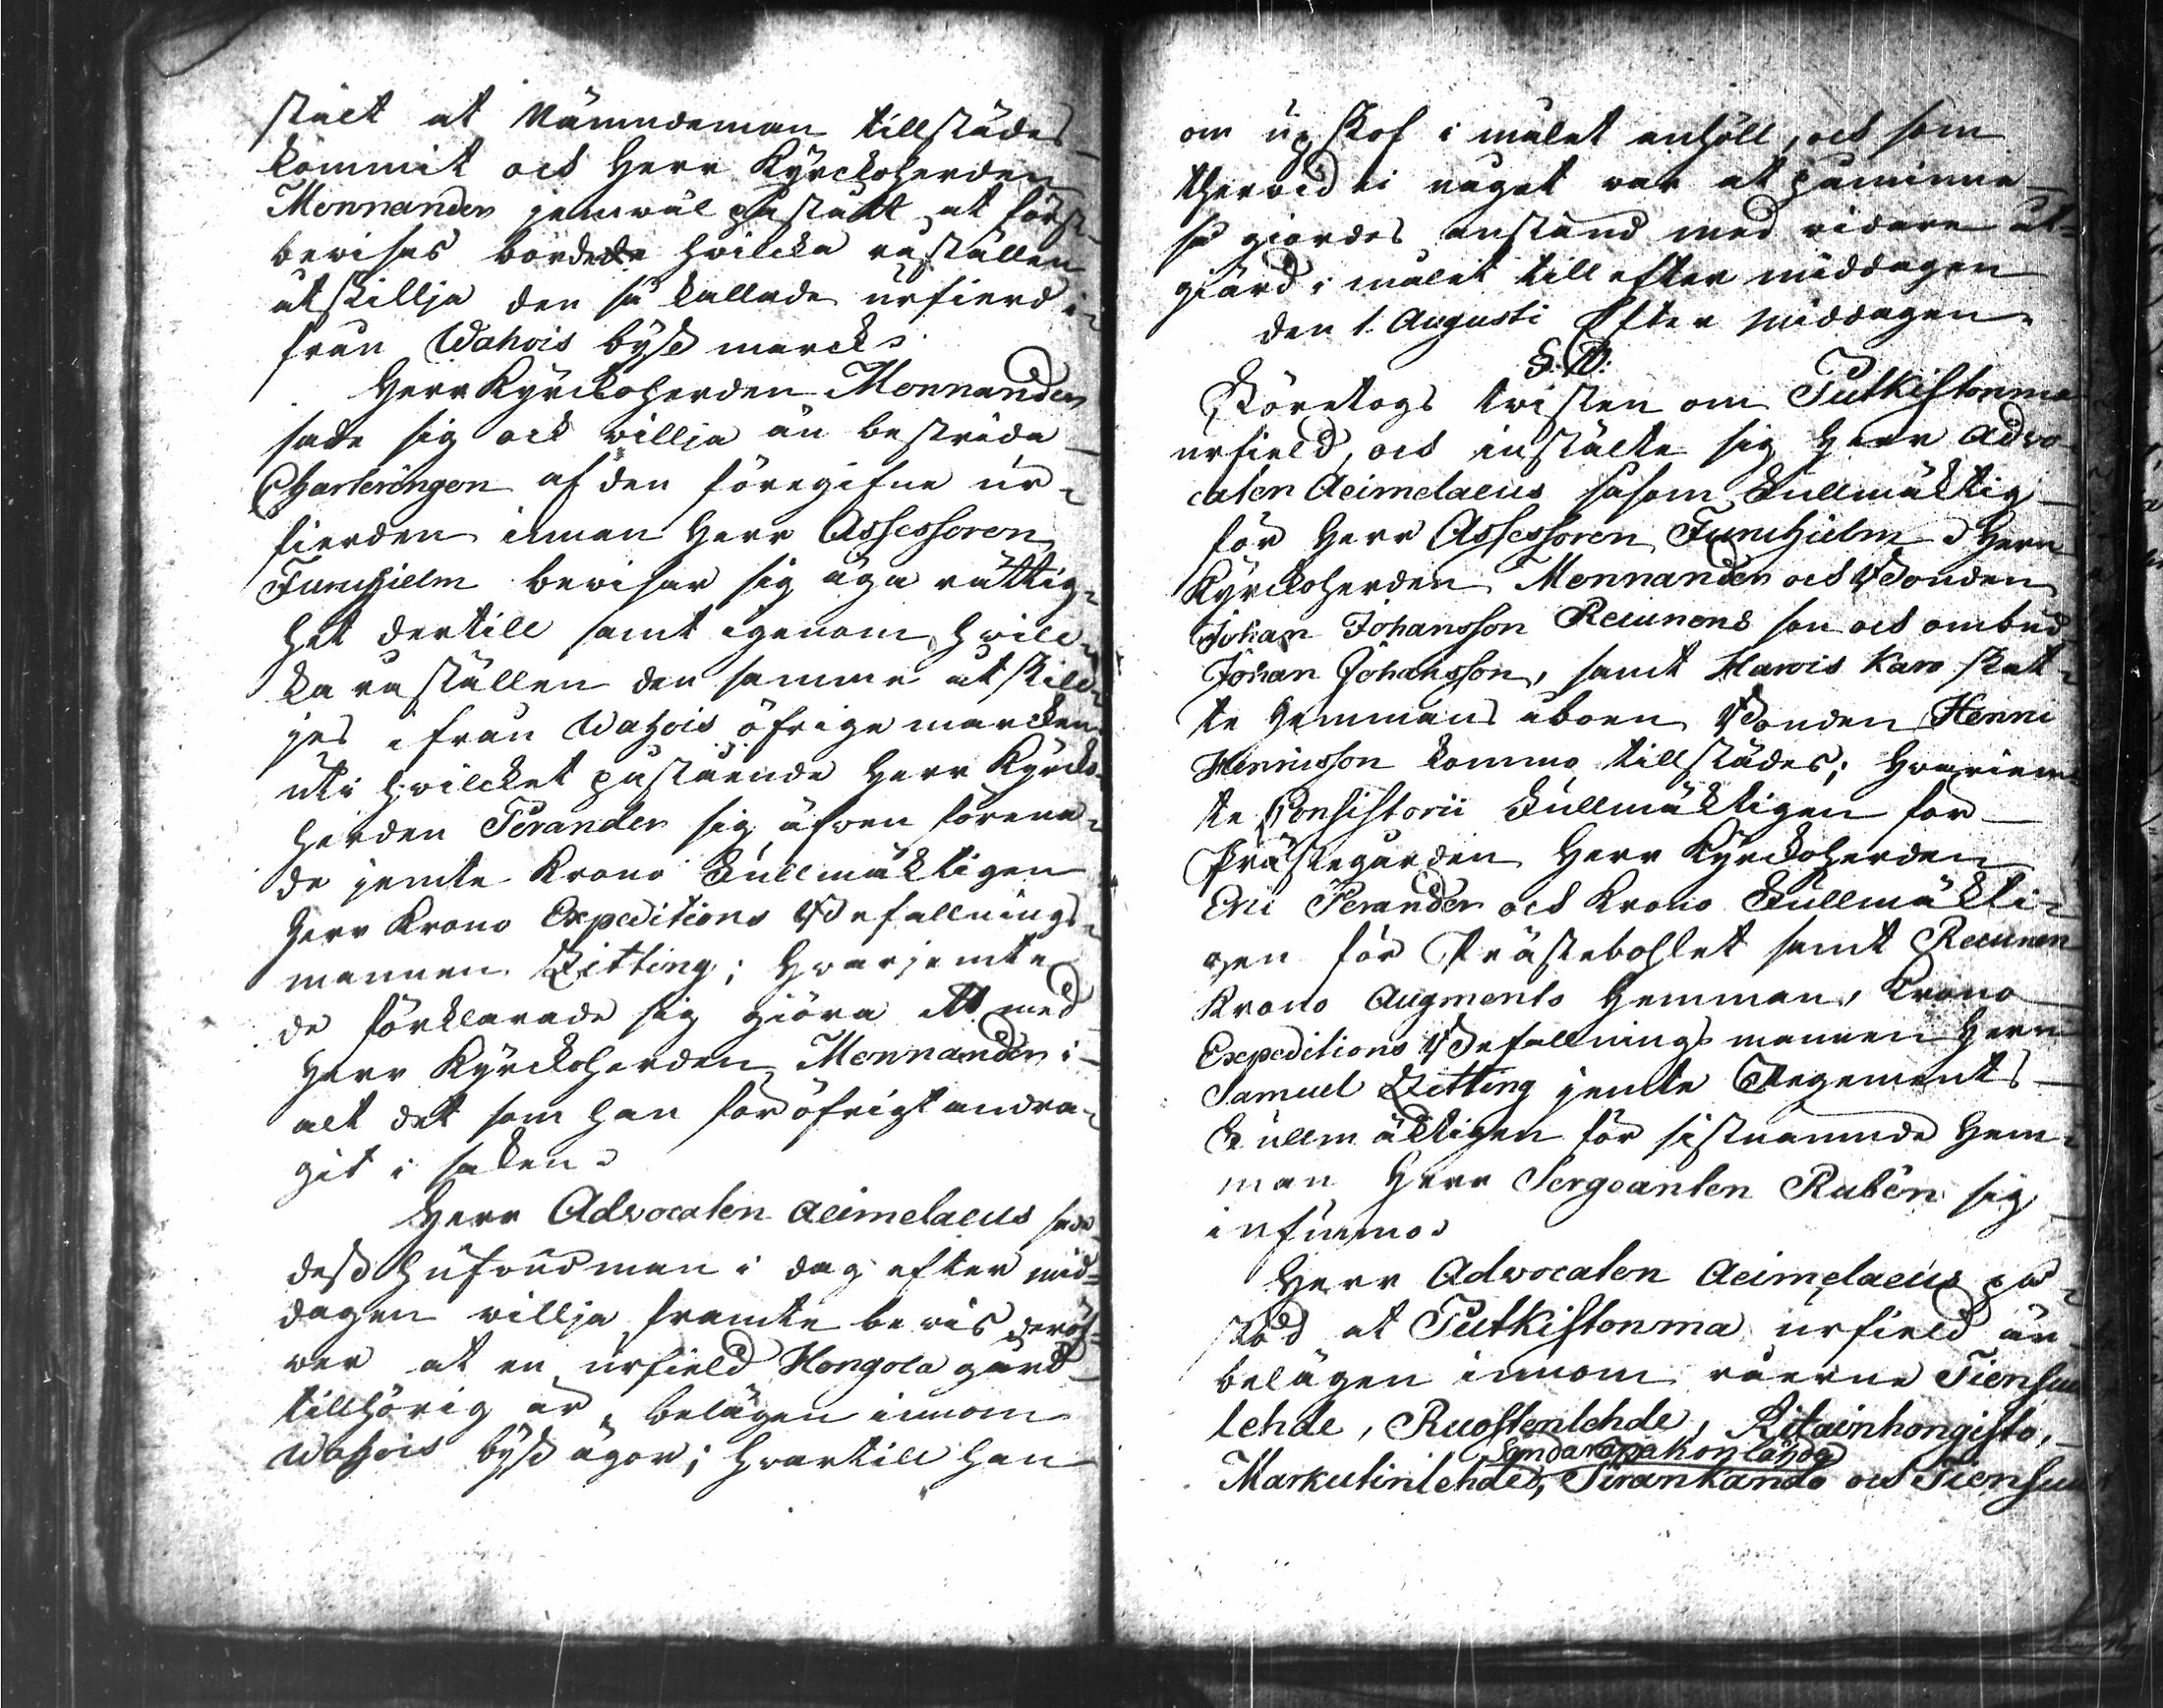 stäct at Nämndeman tillstädes
kommit och Herr Kyrckoherden
Mennander jemwäl påstådt at först
bewisas bördede hwilcka råställen
åtskillja den så kallade urfierd i-
från Wahois byß marck.
Herr Kyrckoherden Mennander
sade sig ock willja än bestrida
Charteringen af den föregifne ur-
fierden innan Herr Assessoren
Furuhjelm bewisar sig äga rättig-
het dertill samt igenom hwilc-
ka råställen den samme åtskill-
jes ifrån Wahois öfrige marcken
uti hwilcket påstående Herr Kyrcko-
herden Perander sig äfwen förena-
de jemte Krono Fullmäktigen
Herr Krono Expeditions Befallnings-
mannen Zitting; Hwarjemte
de förklarade sig giöra ett med
Herr Kyrckoherden Mennander i
alt det som han för öfrigt andra-
git i saken.
Herr Advocaten Aeimelaeus sade
deß Hufwudman i dag efter mid-
dagen willja framte bewis deröf-
wer at en urfield Hongola gård
tillhörig är, belägen innom
Wahois byß ägor; Hwartill han
om upskof i målet anhöll, och som
therwid ei något war at påminna
så giordes anstånd med widare åt-
giärd i målet till efter middagen
den 1. Augusti Efter middagen
S. D.
Företogs twisten om Putkistonma
urfield, och instälte sig Herr Advo-
caten Aeimelaeus såsom Fullmäktig
för Herr Assessoren Furuhjelm. Herr
Kyrckoherden Mennander och Bonden
Johan Johansson Recunens son och ombud
Johan Johansson, samt Harvis Karo skat-
te Hemmans åboen Bonden Henric
Henricsson kommo tillstädes; Hwarjem-
te Consistorii Fullmäktigen för
Prästegården Herr Kyrckoherden
Eric Perander och Krono Fullmäkti-
gen för Prästebohlet samt Recunen
Krono Augments Hemman, Krono
Expeditions Befallningsmannen Herr
Samuel Zitting jemte Regements
Fullmäktigen för sistnämnde Hem-
man Herr Sergeanten Rubén sig
infunno.
Herr Advocaten Aeimelaeus på-
stod at Putkistonma urfield är
belägen innom råerne Tiensuu
lehde, Ruostenlehde, Ritainhongisto,
Syndarapakon lähde
Markutinlehde, Sirankando och Tiensuu